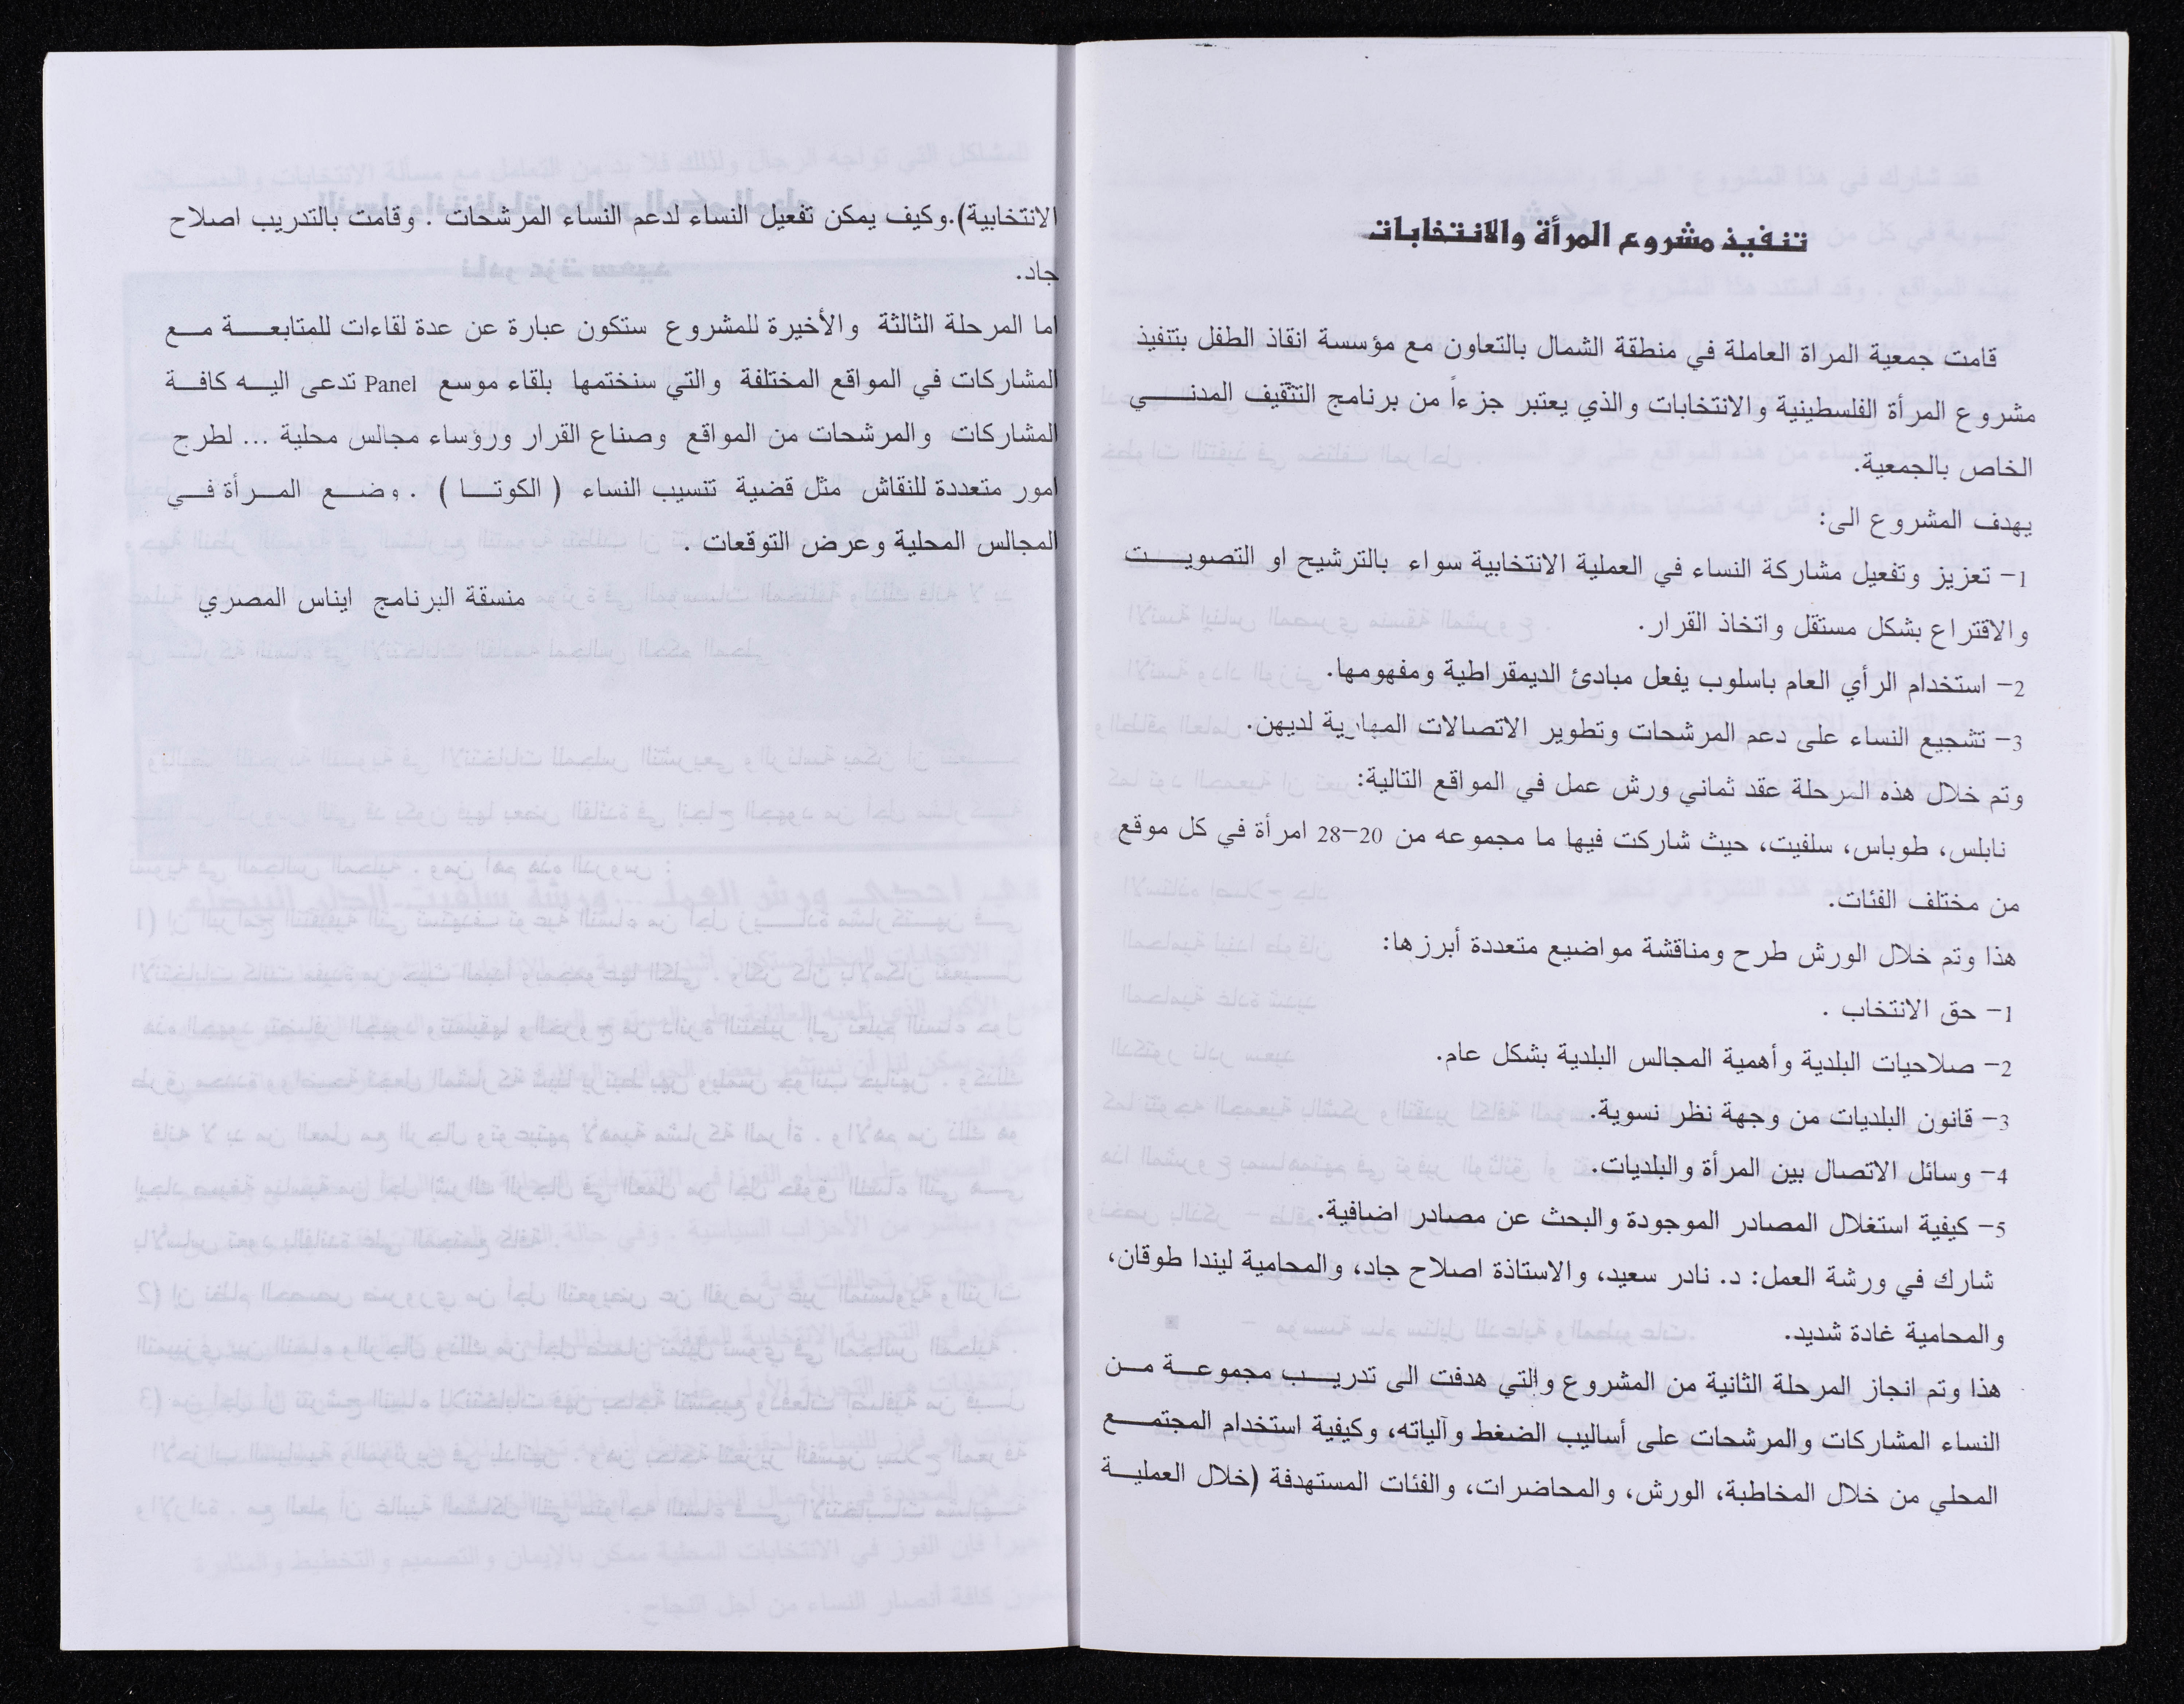 تنفيذ مشروع المرأة والانتخابات
قامت جمعية المراة العاملة في منطقة الشمال بالتعاون مع مؤسسة انقاذ الطفل بتنفيذ
مشروع المرأة الفلسطينية والانتخابات والذي يعتبر جزءاً من برنامج التثقيف المدنـــــي
الخاص بالجمعية.
يهدف المشروع الى:
1- تعزيز وتفعيل مشاركة النساء في العملية الانتخابية سواء بالترشيح او التصويـــــت
والاقتراع بشكل مستقل واتخاذ القرار.
2- استخدام الرأي العام باسلوب يفعل مبادئ الديمقراطية ومفهومها.
3- تشجيع النساء على دعم المرشحات وتطوير الاتصالات المهارية لديهن.
وتم خلال هذه المرحلة عقد ثماني ورش عمل في المواقع التالية:
نابلس، طوباس، سلفيت، حيث شاركت فيها ما مجموعه من 20-28 امرأة في كل موقع
من مختلف الفئات.
هذا وتم خلال الورش طرح ومناقشة مواضيع متعددة أبرزها:
1- حق الانتخاب .
2- صلاحيات البلدية وأهمية المجالس البلدية بشكل عام.
3- قانون البلديات من وجهة نظر نسوية.
4- وسائل الاتصال بين المرأة والبلديات.
5- كيفية استغلال المصادر الموجودة والبحث عن مصادر اضافية.
شارك في ورشة العمل: د. نادر سعيد، والاستاذة اصلاح جاد، والمحامية ليندا طوقان،
والمحامية غادة شديد.
هذا وتم انجاز المرحلة الثانية من المشروع والتي هدفت الى تدريــــب مجموعـــة مـــن
النساء المشاركات والمرشحات على أساليب الضغط وآلياته، وكيفية استخدام المجتمــــع
المحلي من خلال المخاطبة، الورش، والمحاضرات، والفئات المستهدفة (خلال العمليـــة
الانتخابية).وكيف يمكن تفعيل النساء لدعم النساء المرشحات . وقامت بالتدريب اصلاح
جاد.
اما المرحلة الثالثة والأخيرة للمشروع ستكون عبارة عن عدة لقاءات للمتابعـــــة مـــع
المشاركات في المواقع المختلفة والتي سنختمها بلقاء موسع Panel تدعى اليـــه كافـــة
المشاركات والمرشحات من المواقع وصناع القرار ورؤساء مجالس محلية ... لطرح
امور متعددة للنقاش مثل قضية تنسيب النساء ( الكوتـــا ) . وضـــع المـــرأة فـــي
المجالس المحلية وعرض التوقعات .
منسقة البرنامج ايناس المصري